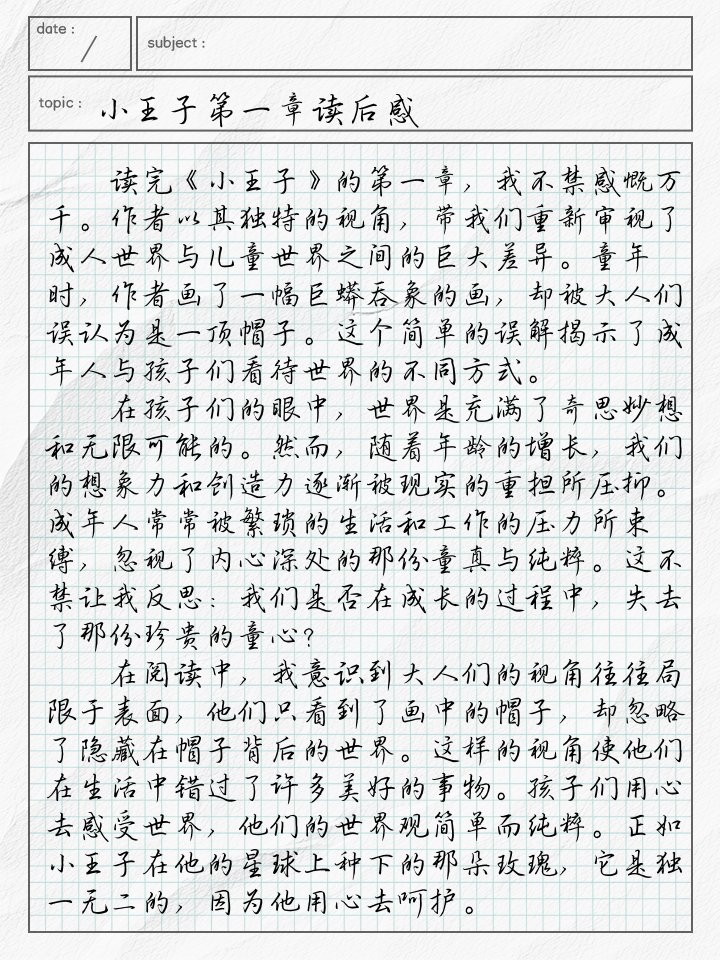 date :
/
subject :
topic : 小王子第一章读后感
读完《小王子》的第一章，我不禁感慨万
千。作者以其独特的视角，带我们重新审视了
成人世界与儿童世界之间的巨大差异。童年
时，作者画了一幅巨蟒吞象的画，却被大人们
误认为是一顶帽子。这个简单的误解揭示了成
年人与孩子们看待世界的不同方式。
在孩子们的眼中，世界是充满了奇思妙想
和无限可能的。然而，随着年龄的增长，我们
的想象力和创造力逐渐被现实的重担所压抑。
成年人常常被繁琐的生活和工作的压力所束
缚，忽视了内心深处的那份童真与纯粹。这不
禁让我反思：我们是否在成长的过程中，失去
了那份珍贵的童心？
在阅读中，我意识到大人们的视角往往局
限于表面，他们只看到了画中的帽子，却忽略
了隐藏在帽子背后的世界。这样的视角使他们
在生活中错过了许多美好的事物。孩子们用心
去感受世界，他们的世界观简单而纯粹。正如
小王子在他的星球上种下的那朵玫瑰，它是独
一无二的，因为他用心去呵护。